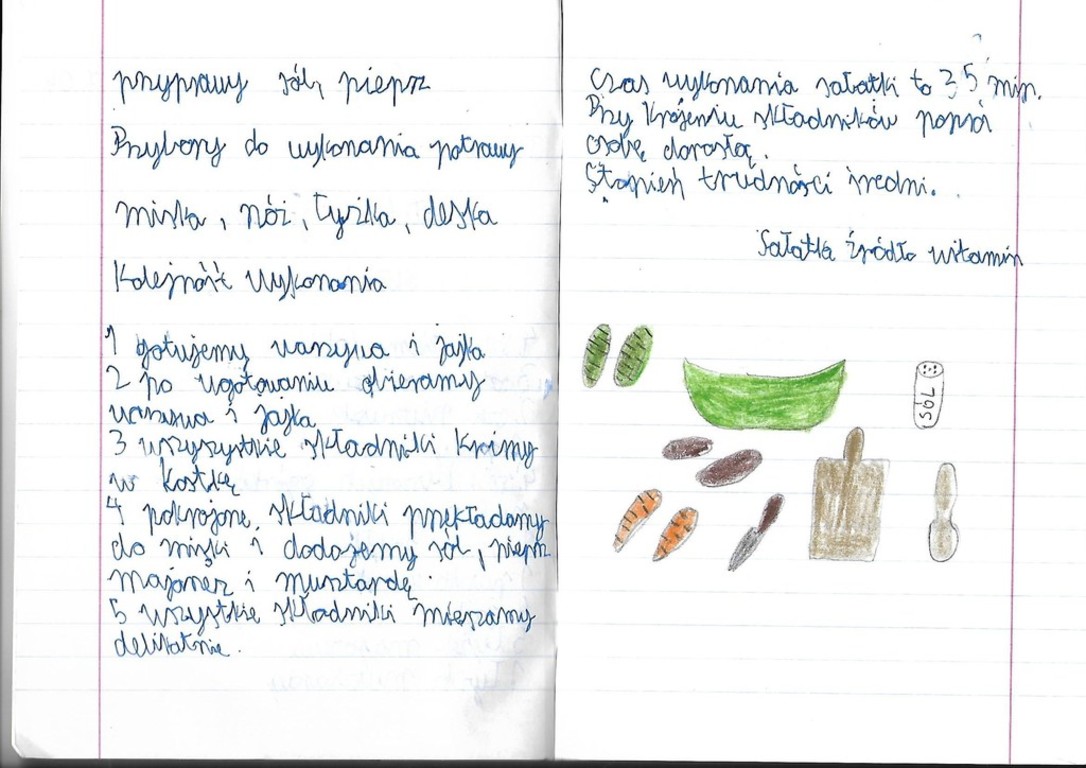 przyprawy sól, pieprz
Przybory do wykonania potrawy
miska, nóż, łyżka, deska
Kolejność wykonania
1 gotujemy warzywa i jajka
2 po ugotowaniu obieramy
warzywa i jajka
3 wszyzystkie składniki kroimy
w kostkę
4 pokrojone składniki przekładamy
do miski i dodajemy sól, pieprz
majonez i musztardę
5 wszystkie składniki mieszamy
delikatnie.
Czas wykonania sałatki to 35 min.
Przy krojeniu składników poproś
osobę dorosłą.
Stopień trudności średni.
Sałatka źródło witamin
SÓL